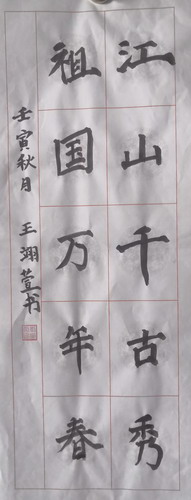 江山千古秀
祖国万年春
壬寅秋月 王翊萱书